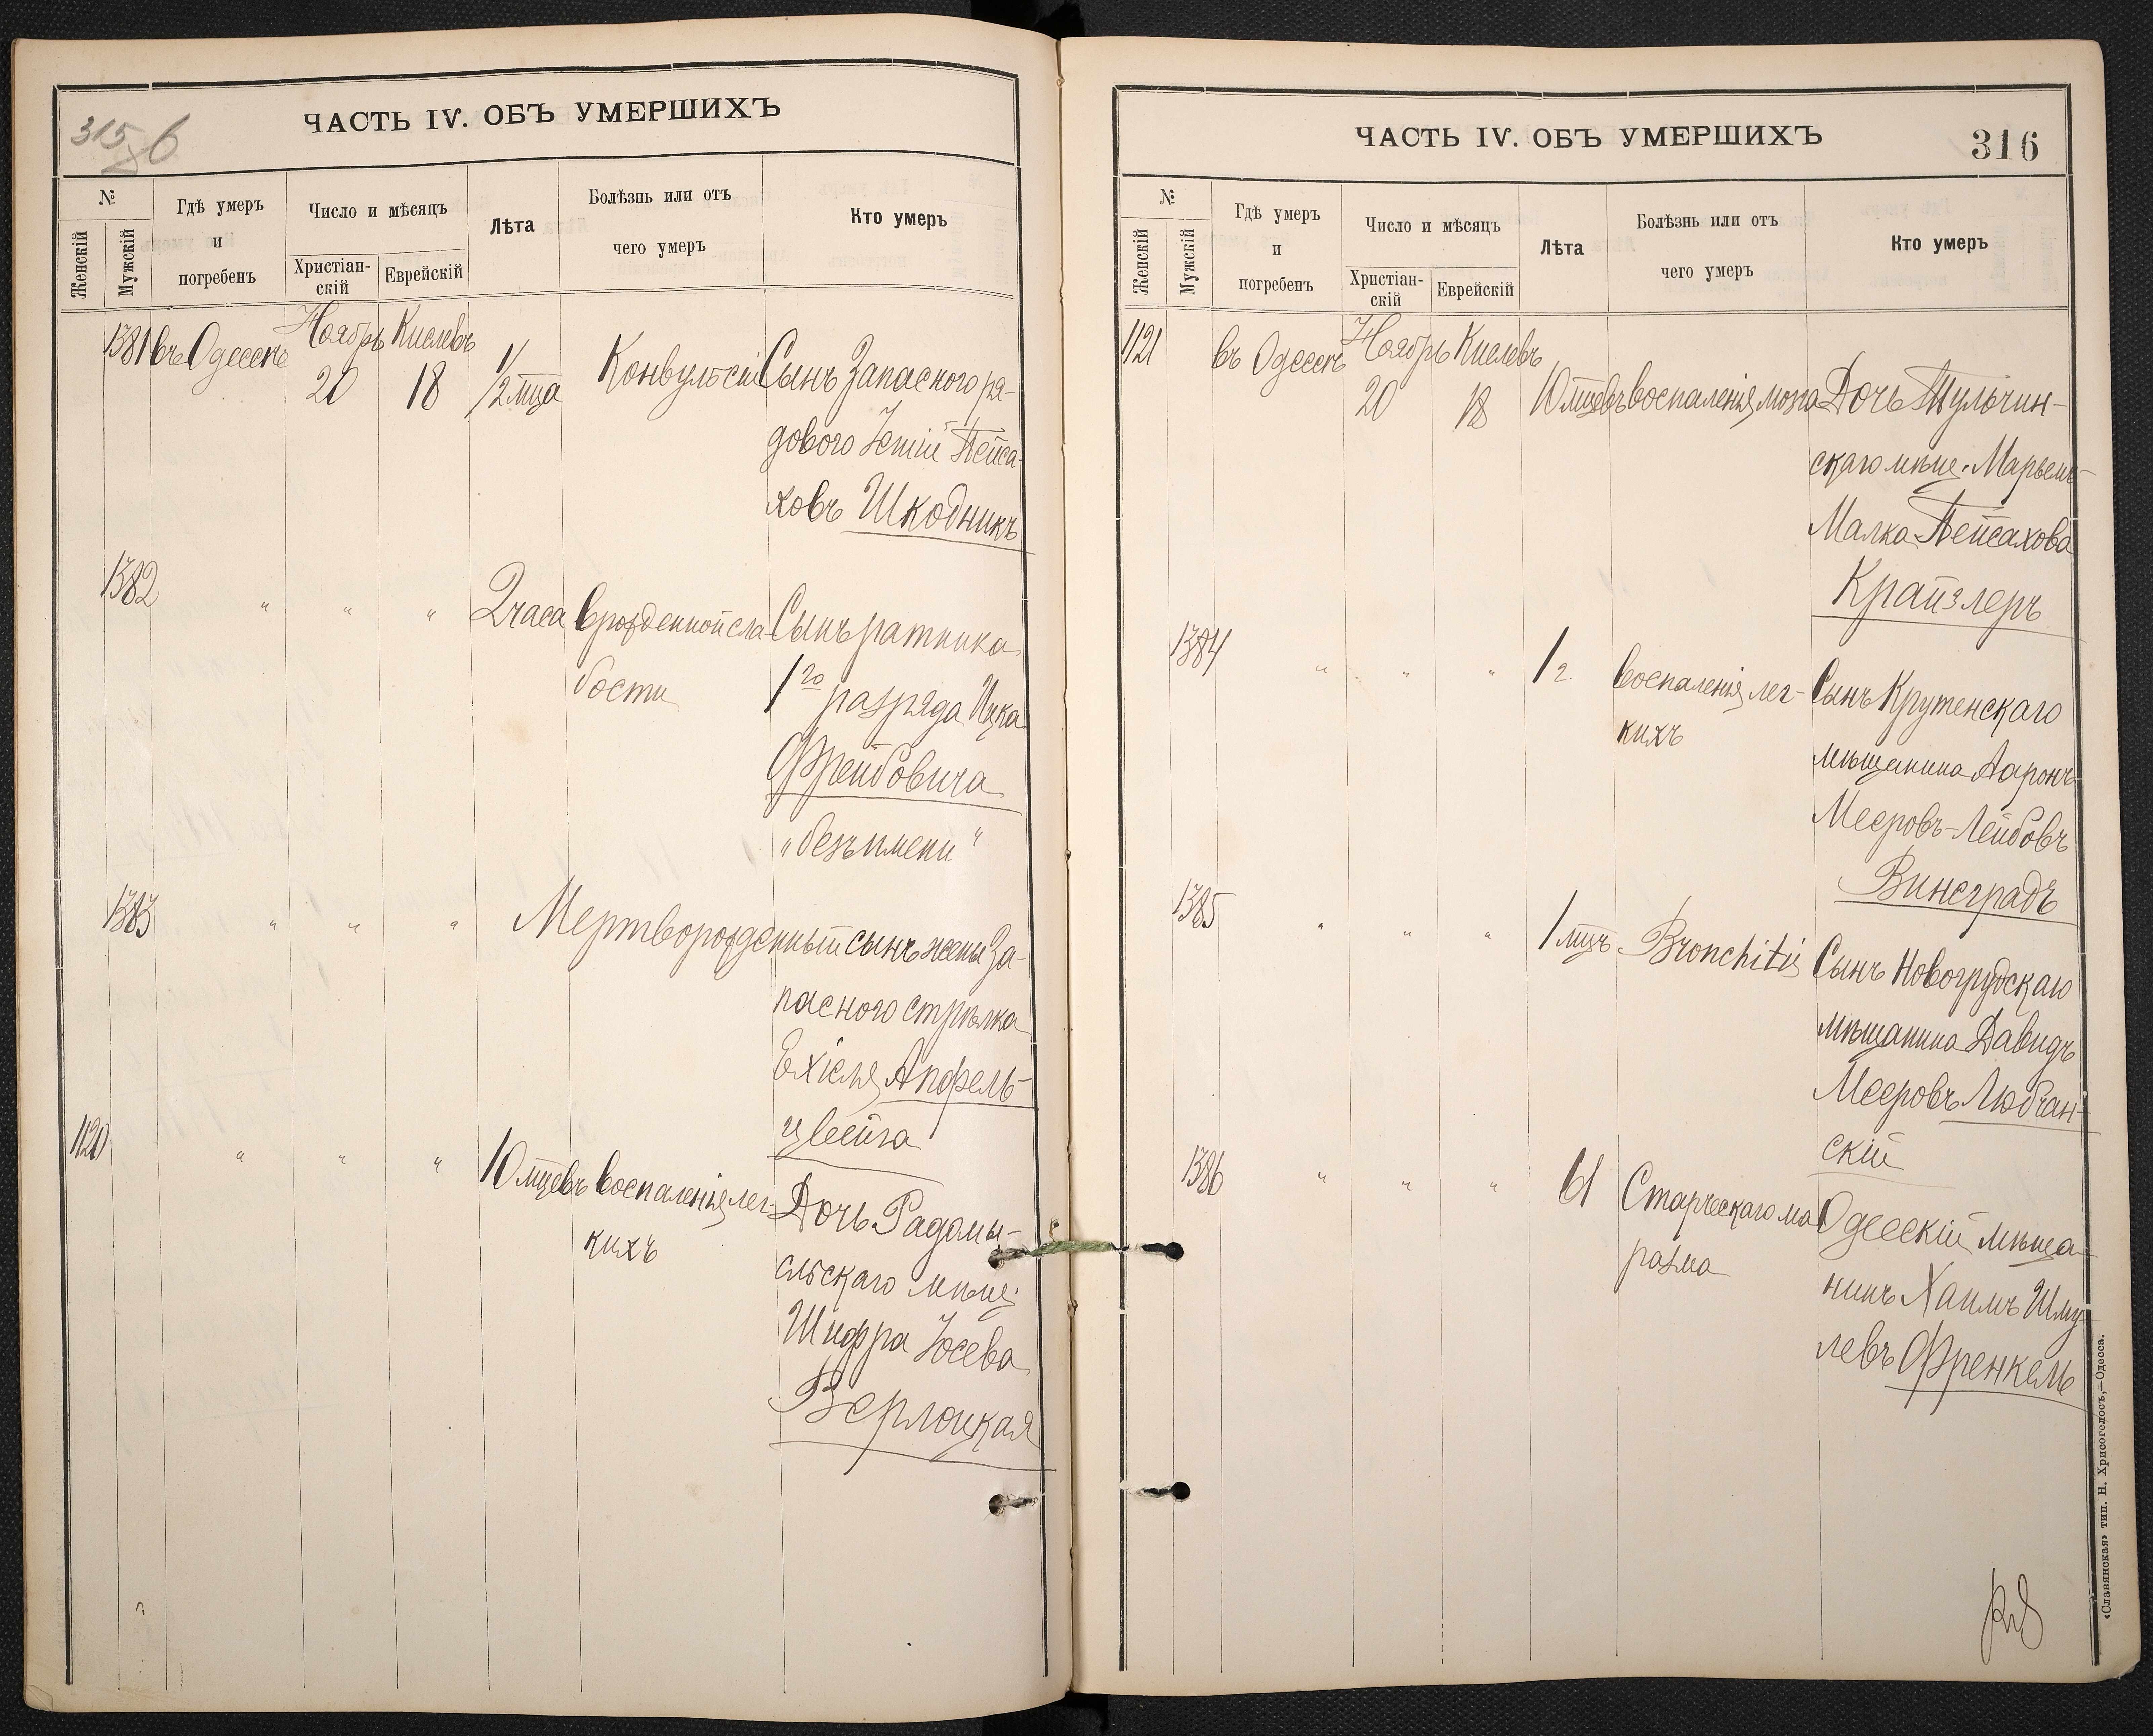 315 б
ЧАСТЬ IV. ОБЪ УМЕРШИХЪ
№
Женскій
Мужскій
Гдѣ умеръ
и
погребенъ
Число и мѣсяцъ
Христіан-
скій
Еврейскій
Лѣта
Болѣзнь или отъ
чего умеръ
Кто умеръ
1381 въ Одессѣ Ноябрь 20 Кислевъ 18 1/2 мца Конвульсій Сынъ Запасного ря-
дового Іотій Пейса-
ховъ Шкодникъ
1382 " " " 2 часа врожденной сла- Сынъ ратника
бости 1го разряда Ицка
Фрейбовича
"безъ имени"
1383 " " " Мертворожденный сынъ жены За-
пасного стрѣлка
Ехіеля Апфель-
цвейга
1120 " " " 10 мцевъ воспаленія лег- Дочь Радомы-
кихъ сльскаго мѣщ.
Шифра Іосева
Верлоцкая
ЧАСТЬ IV. ОБЪ УМЕРШИХЪ
316
№
Женскій
Мужскій
Гдѣ умеръ
и
погребенъ
Число и мѣсяцъ
Христіан-
скій
Еврейскій
Лѣта
Болѣзнь или отъ
чего умеръ
Кто умеръ
1121 въ Одессѣ Ноябрь 20 Кислевъ 18 10 мцевъ воспаленія мозга Дочь Тульчин-
скаго мѣщ. Марьемъ-
Малка Пейсахова
Крайзлеръ
1384 " " " 1 г. воспаленія лег- Сынъ Крутенскаго
кихъ мѣщанина Ааронъ-
Мееровъ-Лейбовъ
Винеградъ
1385 " " " 1 мцъ Bronchitis Сынъ Новогрудскаго
мѣщанина Давидъ
Мееровъ Любчан-
скій
1386 " " " 61 Старческаго ма- Одесскій мѣща-
разма нинъ Хаимъ Шму-
левъ Френкель
«Славянская» тип. Н. Хрисогелосъ,—Одесса.